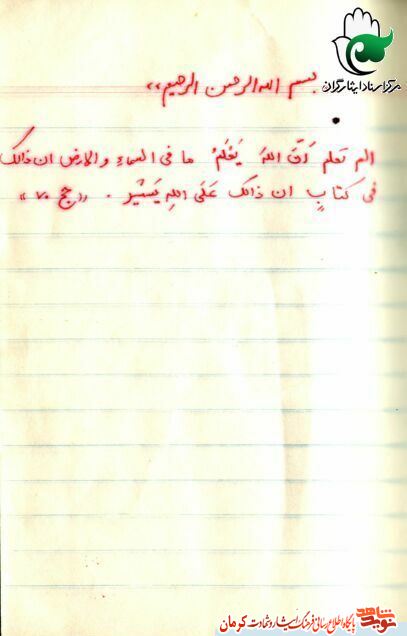 مرکز اسناد ایثارگران
بسم الله الرحمن الرحیم »
الم تعلم اَنَّ اللهَ یَعْلَمُ ما فی السماءِ والارضِ ان ذالک
فی کتابٍ ان ذالک عَلَی اللهِ یَسیْر . «حج ۷۰»
نوید شاهد
پایگاه اطلاع رسانی فرهنگ ایثار و شهادت کرمان